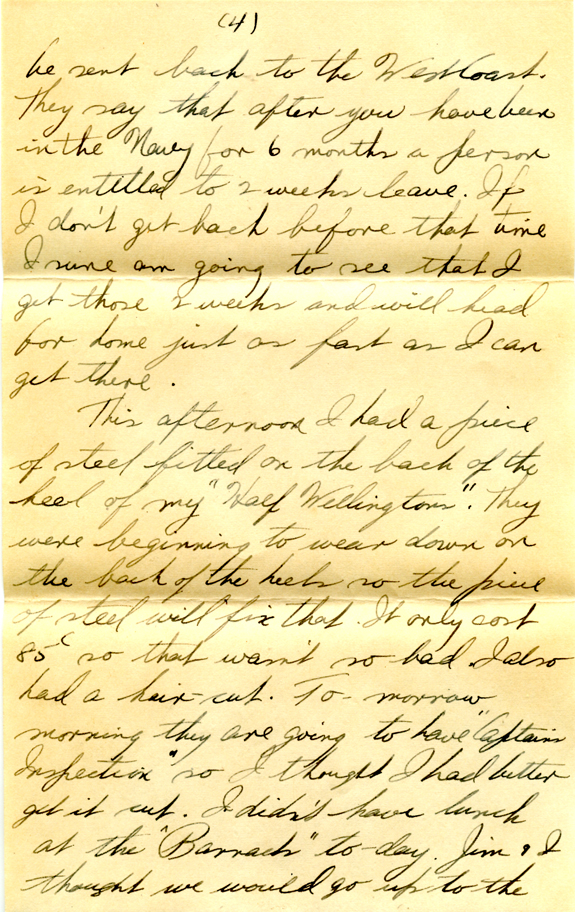 (4)
be sent back to the West Coast.
They say that after you have been
in the Navy for 6 months a person
is entitled to 2 weeks leave. If
I don't get back before that time
I sure am going to see that I
get those 2 weeks and will head
for home just as fast as I can
get there.
This afternoon I had a piece
of steel fitted on the back of the
heel of my "Half Wellingtons". They
were beginning to wear down on
the back of the heels so the piece
of steel will fix that. It only cost
85¢ so that wasn't so bad. I also
had a hair-cut. To-morrow
morning they are going to have "Captains
Inspection" so I thought I had better
get it cut. I didn't have lunch
at the "Barracks" to-day. Jim & I
thought we would go up to the